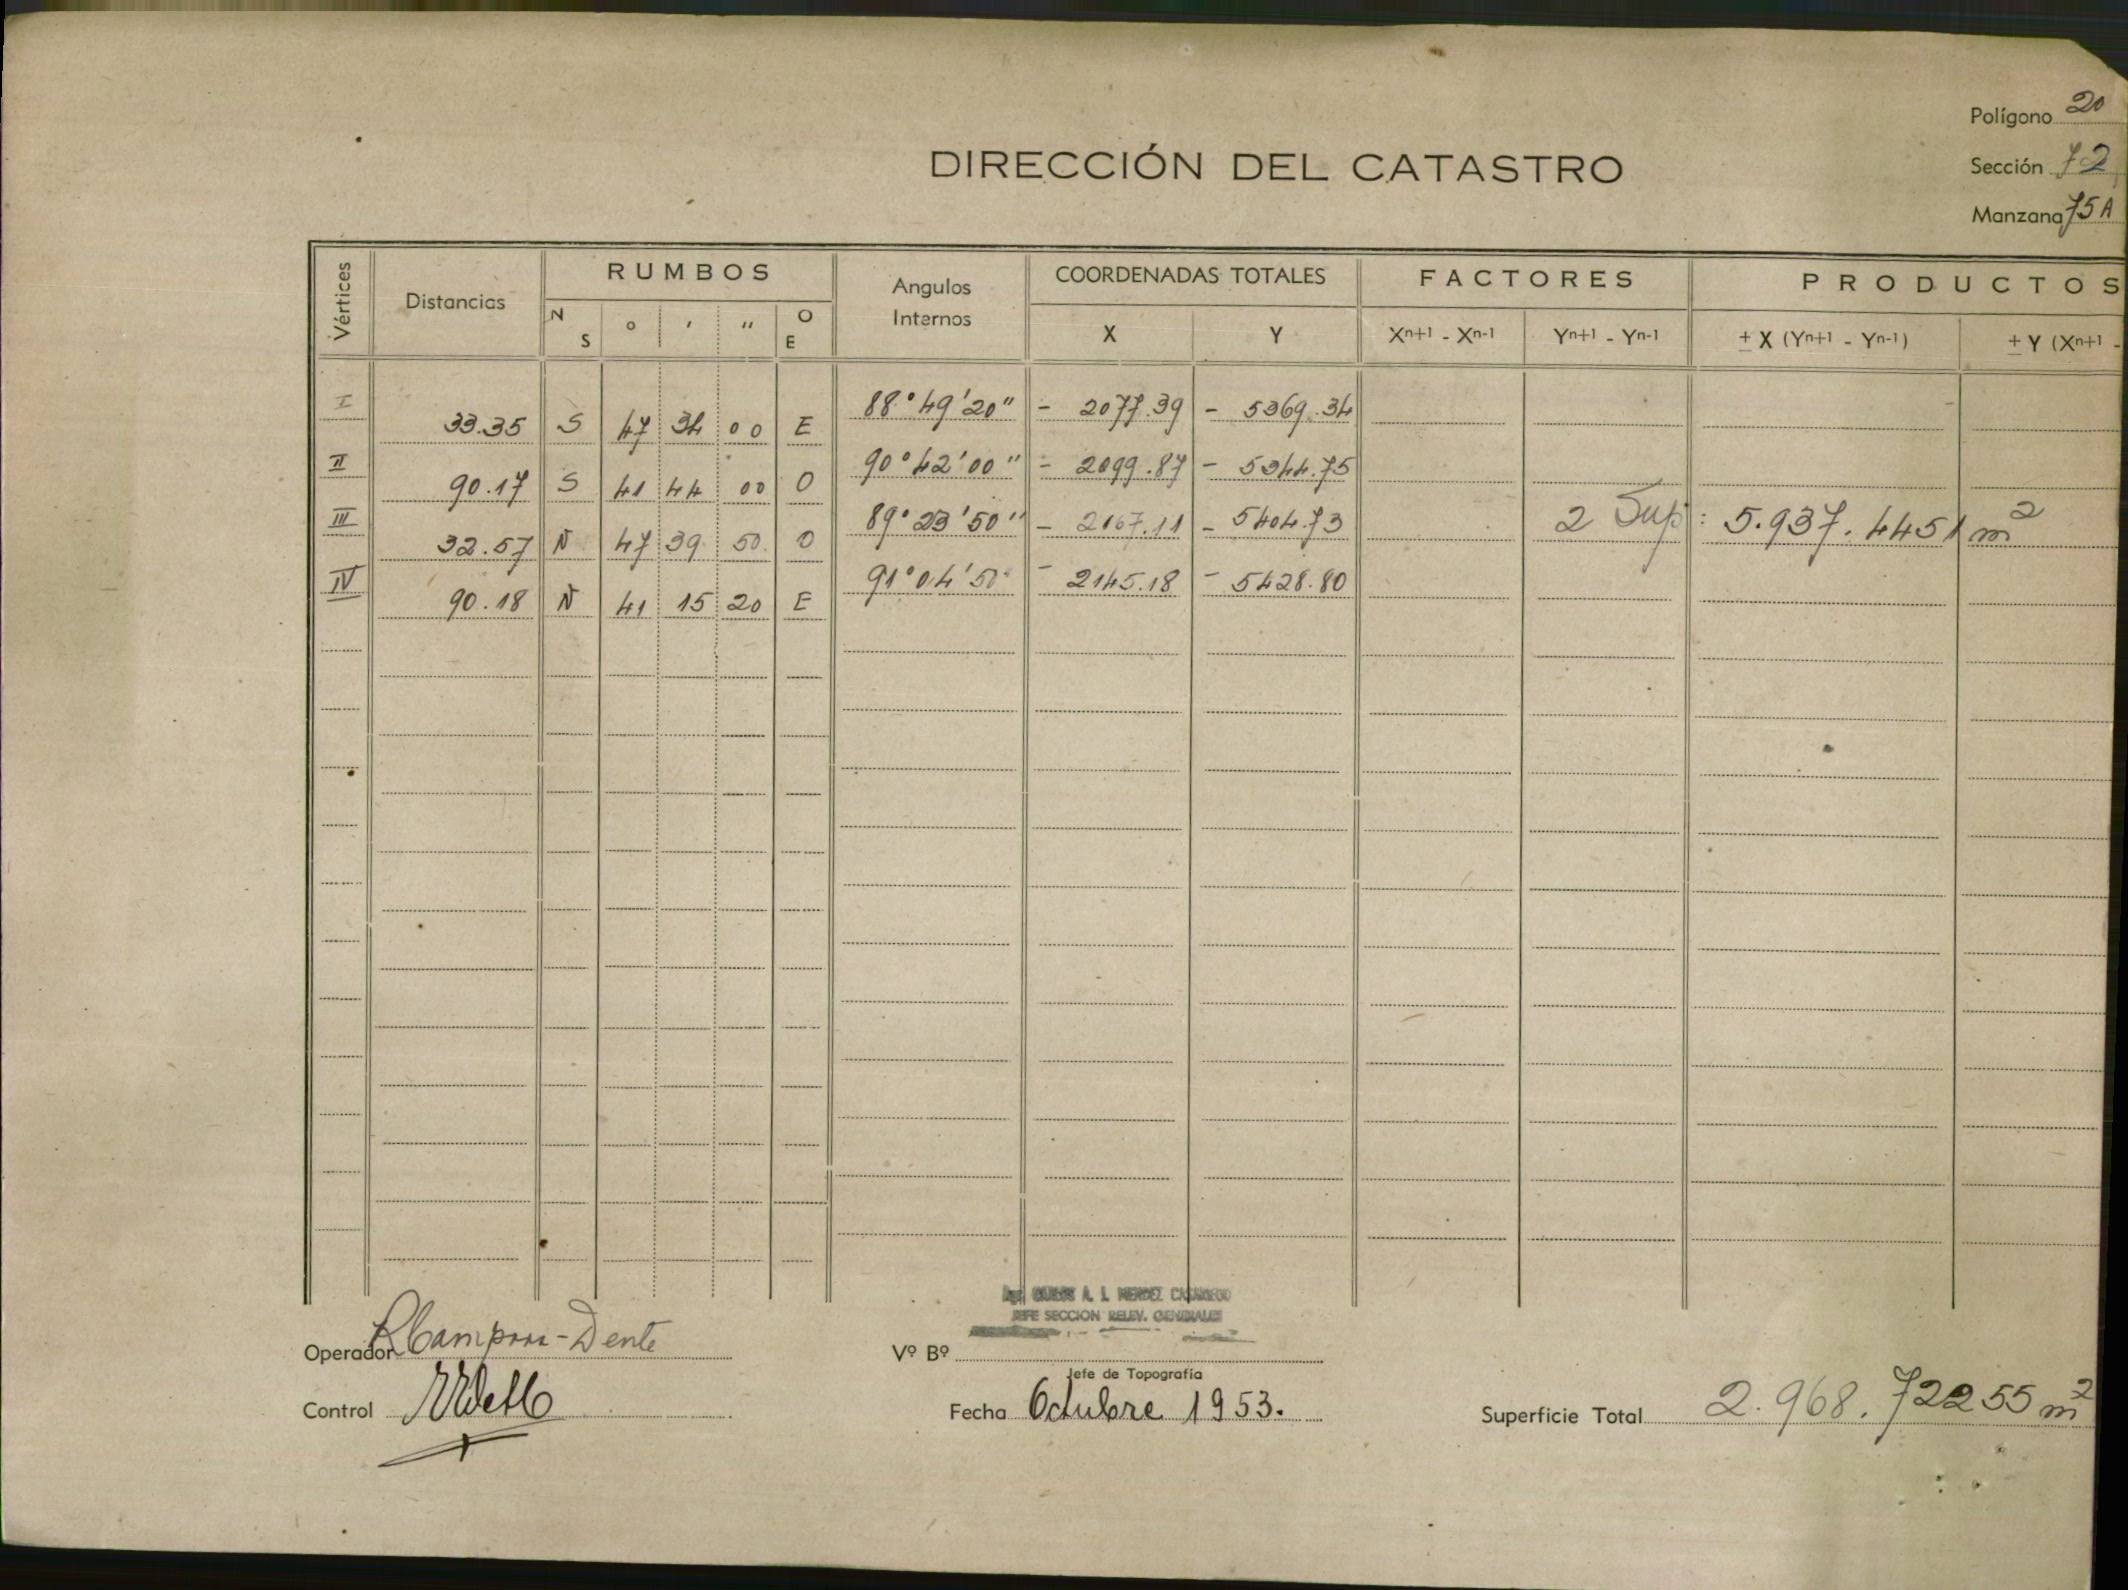 Polígono 20
DIRECCIÓN DEL CATASTRO
Sección 72
Manzana 75A
Vértices Distancias RUMBOS Angulos Internos COORDENADAS TOTALES FACTORES PRODUCTOS
N S ° ' " O E X Y Xn+1 - Xn-1 Yn+1 - Yn-1 ± X (Yn+1 - Yn-1) ± Y (Xn+1 -
I 88°49'20" - 2077.39 - 5369.34
33.35 S 47 34 00 E
II 90°42'00" - 2099.87 - 5344.75
90.17 S 41 44 00 O
III 89°23'50" - 2167.11 - 5404.73 2 Sup: 5.937.4451 m2
32.57 N 47 39 50 O
IV 91°04'50" - 2145.18 - 5428.80
90.18 N 41 15 20 E
A. I. MENDEZ
JEFE SECCION RELEV. GENERALES
Operador Dente
Vº Bº
Jefe de Topografía
Control
Fecha Octubre 1953.
Superficie Total 2.968.72255 m2